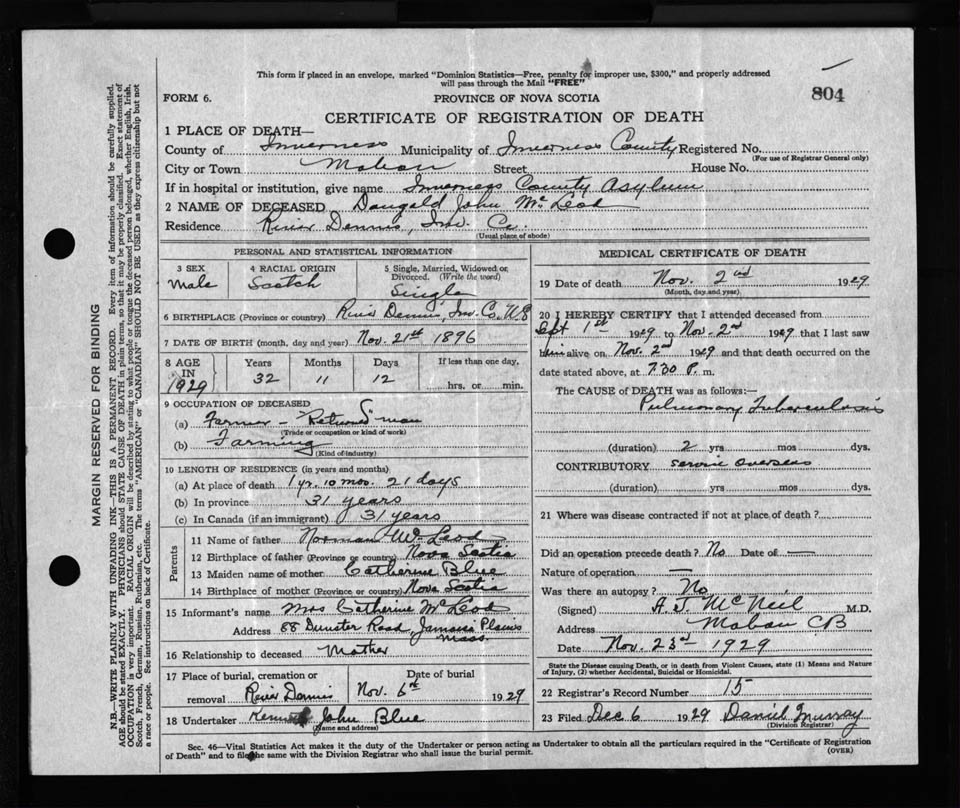 This form if placed in an envelope, marked "Dominion Statistics—Free, penalty for improper use, $300," and properly addressed
will pass through the Mail "FREE"
804
FORM 6.
PROVINCE OF NOVA SCOTIA
CERTIFICATE OF REGISTRATION OF DEATH
1 PLACE OF DEATH—
County of Inverness Municipality of Inverness County Registered No.
(For use of Registrar General only)
City or Town Mabou Street House No.
If in hospital or institution, give name Inverness County Asylum
2 NAME OF DECEASED Dougald John McLeod
Residence River Dennis, Inv. Co.
(Usual place of abode)
PERSONAL AND STATISTICAL INFORMATION
3 SEX Male
4 RACIAL ORIGIN Scotch
5 Single, Married, Widowed or
Divorced. (Write the word)
Single
6 BIRTHPLACE (Province or country) River Dennis, Inv. Co. N.S
7 DATE OF BIRTH (month, day and year) Nov. 21st 1896
8 AGE IN 1929
Years 32
Months 11
Days 12
If less than one day,
hrs. or min.
9 OCCUPATION OF DECEASED
(a) Farmer - Returned S man
(Trade or occupation or kind of work)
(b) Farming
(Kind of industry)
10 LENGTH OF RESIDENCE (in years and months)
(a) At place of death 1 yr. 10 mos. 21 days
(b) In province 31 years
(c) In Canada (if an immigrant) 31 years
Parents
11 Name of father Norman McLeod
12 Birthplace of father (Province or country) Nova Scotia
13 Maiden name of mother Catherine Blue
14 Birthplace of mother (Province or country) Nova Scotia
15 Informant's name Mrs Catherine McLeod
Address 88 Dunster Road, Jamaica Plains
Mass.
16 Relationship to deceased Mother
17 Place of burial, cremation or
removal River Dennis
Date of burial
Nov. 6th 1929
18 Undertaker Kenneth John Blue
(Name and address)
MEDICAL CERTIFICATE OF DEATH
19 Date of death Nov. 2nd 1929
(Month, day and year)
20 I HEREBY CERTIFY that I attended deceased from
Sept 1st 1929 to Nov. 2nd 1929 that I last saw
him alive on Nov. 2nd 1929 and that death occurred on the
date stated above, at 7.30 P. m.
The CAUSE of DEATH was as follows:—
Pulmonary Tuberculosis
(duration) 2 yrs mos dys.
CONTRIBUTORY service overseas
(duration) yrs mos dys.
21 Where was disease contracted if not at place of death?
Did an operation precede death? No Date of —
Nature of operation —
Was there an autopsy? No
(Signed) A.J. McNeil M.D.
Address Mabou CB
Date Nov. 23rd 1929
State the Disease causing Death, or in death from Violent Causes, state (1) Means and Nature
of Injury, (2) whether Accidental, Suicidal or Homicidal.
22 Registrar's Record Number 15
23 Filed Dec 6 1929 Daniel Murray
(Division Registrar)
Sec. 46—Vital Statistics Act makes it the duty of the Undertaker or person acting as Undertaker to obtain all the particulars required in the "Certificate of Registration
of Death" and to file the same with the Division Registrar who shall issue the burial permit.
(OVER)
MARGIN RESERVED FOR BINDING
N.B.—WRITE PLAINLY WITH UNFADING INK—THIS IS A PERMANENT RECORD. Every item of information should be carefully supplied.
AGE should be stated EXACTLY. PHYSICIANS should STATE CAUSE OF DEATH in plain terms, so that it may be properly classified. Exact statement of
OCCUPATION is very important. RACIAL ORIGIN will be described by stating to what people or tongue the deceased person belonged, whether English, Irish,
Scotch, French, German, Russian, Ruthenian, etc. The terms "AMERICAN" or "CANADIAN" SHOULD NOT BE USED as they express citizenship but not
a race or people. See instructions on back of Certificate.